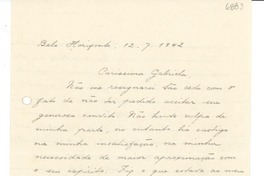 6883
Belo Horizonte, 12-7-1942
Carissima Gabriela:
Não me resignarei tão cedo com o
fato de não ter podido aceitar seu
generoso convite. Não houve culpa de
minha parte, no entanto há castigo
na minha insatisfação, na minha
necessidade de maior aproximação com
o seu espírito. Fiz o que estava ao meu